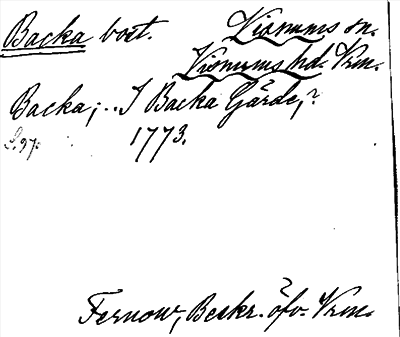 Backa bost. Visnums sn.
Visnums hd. Vrm.
Backa; .. I Backa Gärde,?
S.97. 1773.
Fernow, Beskr. öfv. Vrm.